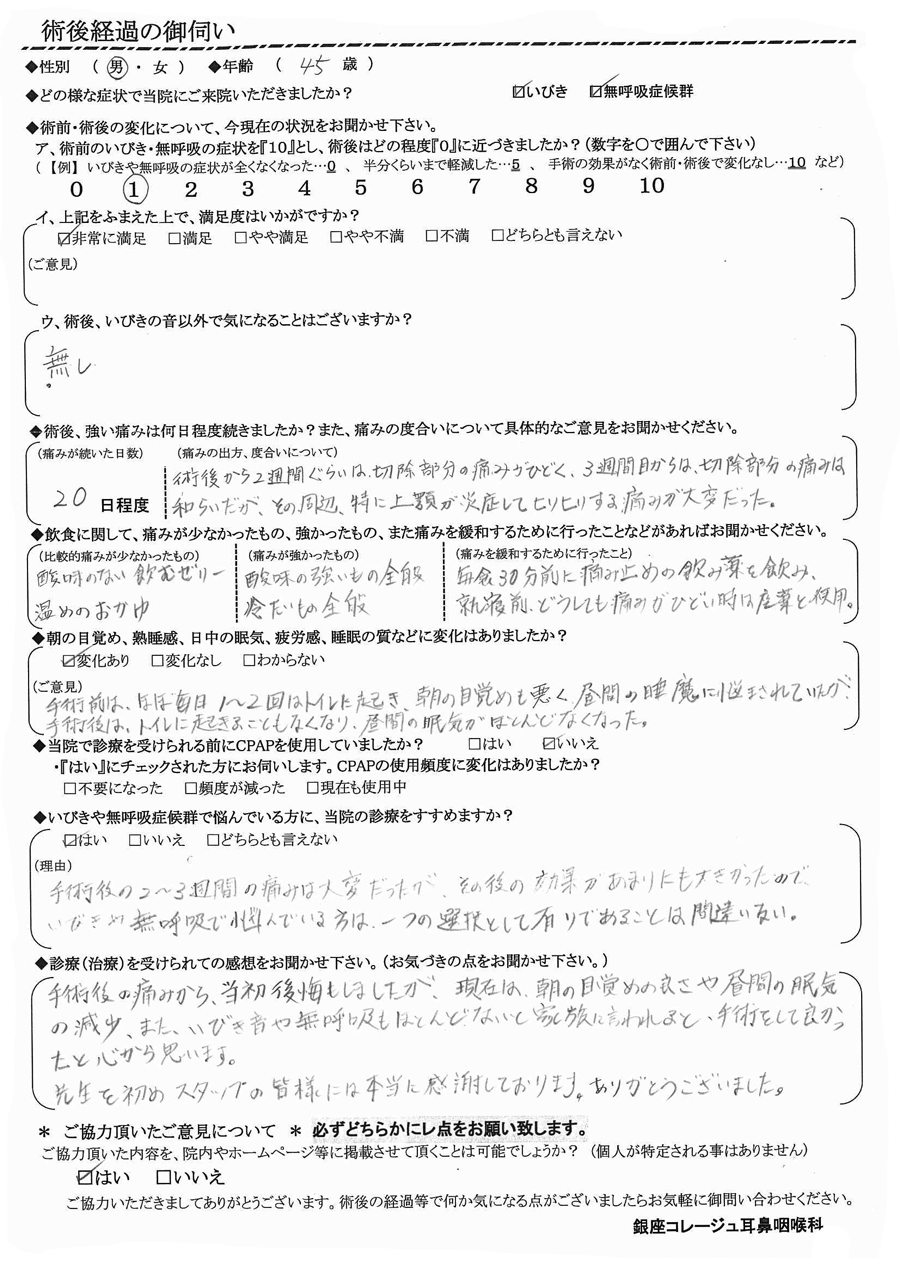 術後経過の御伺い
◆性別 （ 男 ・ 女 ） ◆年齢 （ 45 歳 ）
◆どの様な症状で当院にご来院いただきましたか？ ☑いびき ☑無呼吸症候群
◆術前・術後の変化について、今現在の状況をお聞かせ下さい。
ア、術前のいびき・無呼吸の症状を『10』とし、術後はどの程度『0』に近づきましたか？（数字を〇で囲んで下さい）
（ 【例】 いびきや無呼吸の症状が全くなくなった…0 、 半分くらいまで軽減した…5 、 手術の効果がなく術前・術後で変化なし…10 など）
0 1 2 3 4 5 6 7 8 9 10
イ、上記をふまえた上で、満足度はいかがですか？
☑非常に満足 □満足 □やや満足 □やや不満 □不満 □どちらとも言えない
（ご意見）
ウ、術後、いびきの音以外で気になることはございますか？
無し
。
◆術後、強い痛みは何日程度続きましたか？また、痛みの度合いについて具体的なご意見をお聞かせください。
（痛みが続いた日数） （痛みの出方、度合いについて）
術後から2週間ぐらいは、切除部分の痛みがひどく、3週間目からは、切除部分の痛みは
20 日程度 和らいだが、その周辺、特に上顎が炎症してヒリヒリする痛みが大変だった。
◆飲食に関して、痛みが少なかったもの、強かったもの、また痛みを緩和するために行ったことなどがあればお聞かせください。
（比較的痛みが少なかったもの） （痛みが強かったもの） （痛みを緩和するために行ったこと）
酸味のない飲むゼリー 酸味の強いもの全般 毎食30分前に痛み止めの飲み薬を飲み、
温めのおかゆ 冷たいもの全般 就寝前、どうしても痛みがひどい時は座薬を使用。
◆朝の目覚め、熟睡感、日中の眠気、疲労感、睡眠の質などに変化はありましたか？
☑変化あり □変化なし □わからない
（ご意見）
手術前は、ほぼ毎日1～2回はトイレに起き、朝の目覚めも悪く、昼間の睡魔に悩まされていたが、
手術後は、トイレに起きることもなくなり、昼間の眠気がほとんどなくなった。
◆当院で診療を受けられる前にCPAPを使用していましたか？ □はい ☑いいえ
・『はい』にチェックされた方にお伺いします。CPAPの使用頻度に変化はありましたか？
□不要になった □頻度が減った □現在も使用中
◆いびきや無呼吸症候群で悩んでいる方に、当院の診療をすすめますか？
☑はい □いいえ □どちらとも言えない
（理由）
手術後の2～3週間の痛みは大変だったが、その後の効果があまりにも大きかったので、
いびきや無呼吸で悩んでいる方は、一つの選択として有りであることは間違いない。
◆診療（治療）を受けられての感想をお聞かせ下さい。（お気づきの点をお聞かせ下さい。）
手術後の痛みから、当初後悔もしましたが、現在は、朝の目覚めの良さや昼間の眠気
の減少、また、いびき音や無呼吸もほとんどないと家族に言われると、手術をして良かっ
たと心から思います。
先生を初めスタッフの皆様には本当に感謝しております。ありがとうございました。
＊ ご協力頂いたご意見について ＊ 必ずどちらかにレ点をお願い致します。
ご協力頂いた内容を、院内やホームページ等に掲載させて頂くことは可能でしょうか？ （個人が特定される事はありません）
☑はい □いいえ
ご協力いただきましてありがとうございます。術後の経過等で何か気になる点がございましたらお気軽に御問い合わせください。
銀座コレージュ耳鼻咽喉科